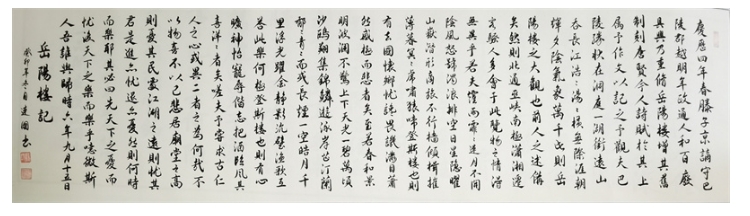 慶曆四年春滕子京謫守巴
陵郡越明年政通人和百廢
具興乃重修岳陽樓增其舊
制刻唐賢今人詩賦於其上
属予作文以記之予觀夫巴
陵勝狀在洞庭一湖銜遠山
吞長江浩浩湯湯橫無際涯朝
暉夕陰氣象萬千此則岳
陽樓之大觀也前人之述備
矣然則北通巫峽南極瀟湘遷
客騷人多會于此覽物之情得
無異乎若夫霪雨霏霏連月不開
陰風怒號濁浪排空日星隱曜
山嶽潛形商旅不行檣傾楫摧
薄暮冥冥虎嘯猿啼登斯樓也則
有去國懷鄉憂讒畏譏滿目蕭
然感極而悲者矣至若春和景
明波瀾不驚上下天光一碧萬頃
沙鷗翔集錦鱗游泳岸芷汀蘭
郁郁青青而或長煙一空皓月千
里浮光躍金静影沉璧漁歌互
答此樂何極登斯樓也則有心
曠神怡寵辱偕忘把酒臨風其
喜洋洋者矣嗟夫予嘗求古仁
人之心或異二者之為何哉不
以物喜不以己悲居廟堂之高
則憂其民處江湖之遠則憂其
君是進亦憂退亦憂然則何時
而樂耶其必曰先天下之憂而
憂後天下之樂而樂乎噫微斯
人吾誰與歸時六年九月十五日
岳陽樓記
癸卯年 建國書